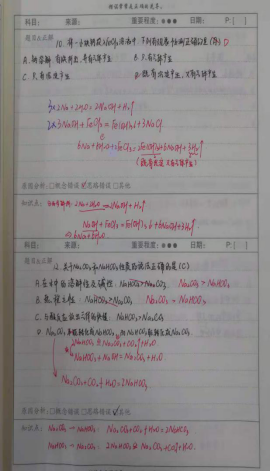 科目: 来源: 重要程度: 日期: P.[ ]
题目&正解:
10. 将一小块钠投入FeCl₃溶液中,下列有关现象预测正确的是( ) D
A. 钠溶解,有 生成,只有气体产生 B. 只有
C. 只有沉淀产生 D. 既有沉淀产生,又有气体产生
3× 2Na + 2H₂O = 2NaOH + H₂↑
2× 3NaOH + FeCl₃ = Fe(OH)₃↓ + 3NaCl
6Na + 6H₂O + 2FeCl₃ = 2Fe(OH)₃↓ + 6NaCl + 3H₂↑
(既有沉淀 又有气体产生)
原因分析: □概念错误 思路错误 □其他
知识点: 2Na + 2H₂O = 2NaOH + H₂↑
NaOH + FeCl₃ = Fe(OH)₃↓
科目: 来源: 重要程度: 日期: P.[ ]
题目&正解:
12. 关于Na₂CO₃和NaHCO₃性质的说法正确的是 (C)
A. 在水中的溶解性及碱性: NaHCO₃>Na₂CO₃. Na₂CO₃ > NaHCO₃
B. 热稳定性: NaHCO₃>Na₂CO₃ Na₂CO₃ > NaHCO₃.
C. 与酸反应放出气体的快慢: NaHCO₃>Na₂CO₃
D. Na₂CO₃不能转化成NaHCO₃,而NaHCO₃能转化成Na₂CO₃
2NaHCO₃ ≜ Na₂CO₃+CO₂↑+H₂O
NaHCO₃+NaOH = Na₂CO₃+H₂O.
Na₂CO₃+CO₂+H₂O = 2NaHCO₃
原因分析: □概念错误 □思路错误 ☑其他
知识点: Na₂CO₃ → NaHCO₃: Na₂CO₃+CO₂+H₂O = 2NaHCO₃
NaHCO₃ → Na₂CO₃: 2NaHCO₃ ≜ Na₂CO₃+CO₂↑+H₂O.